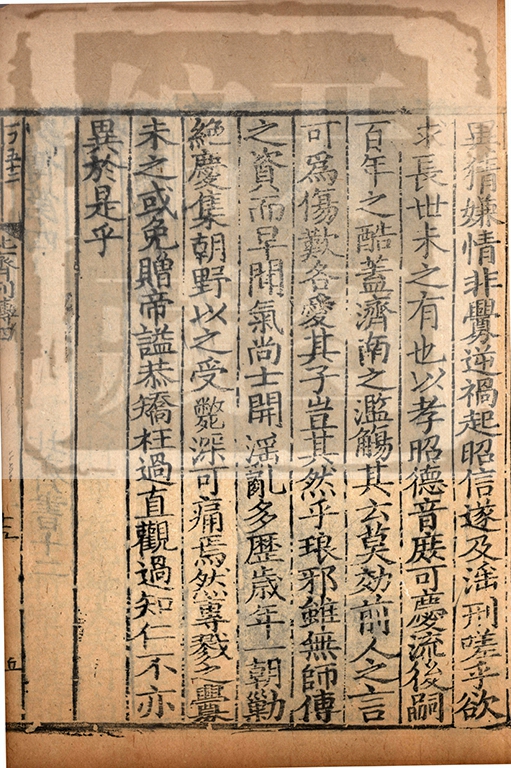 異猜嫌情非釁逆禍起昭信遂及淫刑嗟乎欲
求長世未之有也以孝昭德音庻可慶流後嗣
百年之酷蓋濟南之濫觴其云莫効前人之言
可為傷歎各愛其子豈其然乎琅邪雖無師傅
之資而早聞氣尚士開淫亂多歷歲年一朝勦
絶慶集朝野以之受斃深可痛焉然專戮之釁
未之或免贈帝謚恭矯枉過直觀過知仁不亦
異於是乎
北齊列傳四
十五